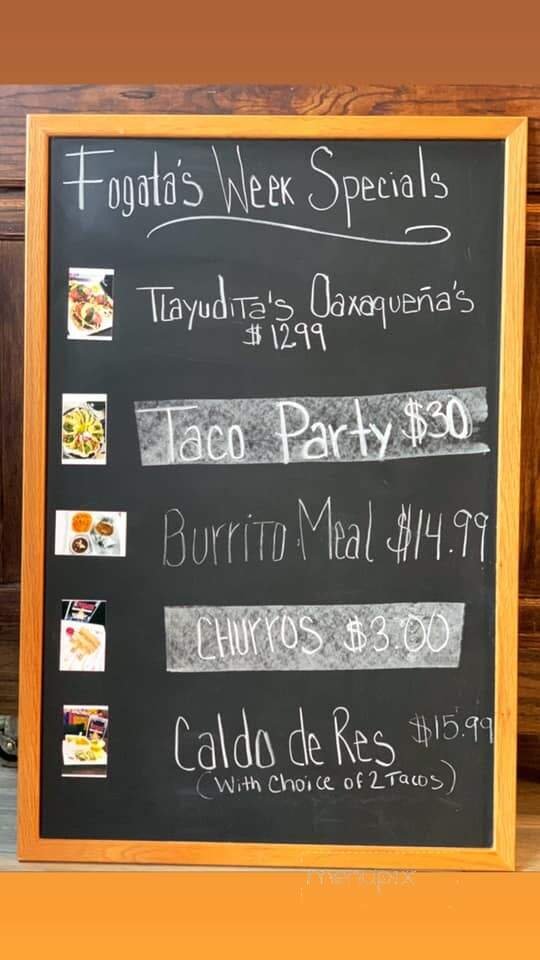 Fogata's Week Specials
Tlayudita's Oaxaqueña's
$1299
Taco Party $30
Burrito Meal $14.99
Churros $3.00
Caldo de Res $15.99
(With Choice of 2 Tacos)
menupix